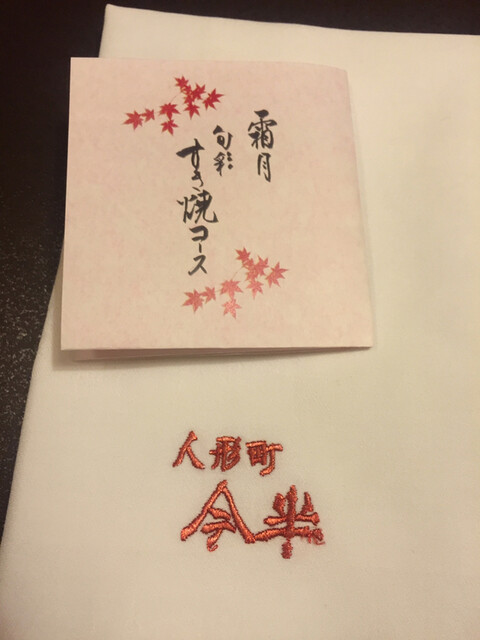 霜月
旬彩
すき焼コース
人形町
今半